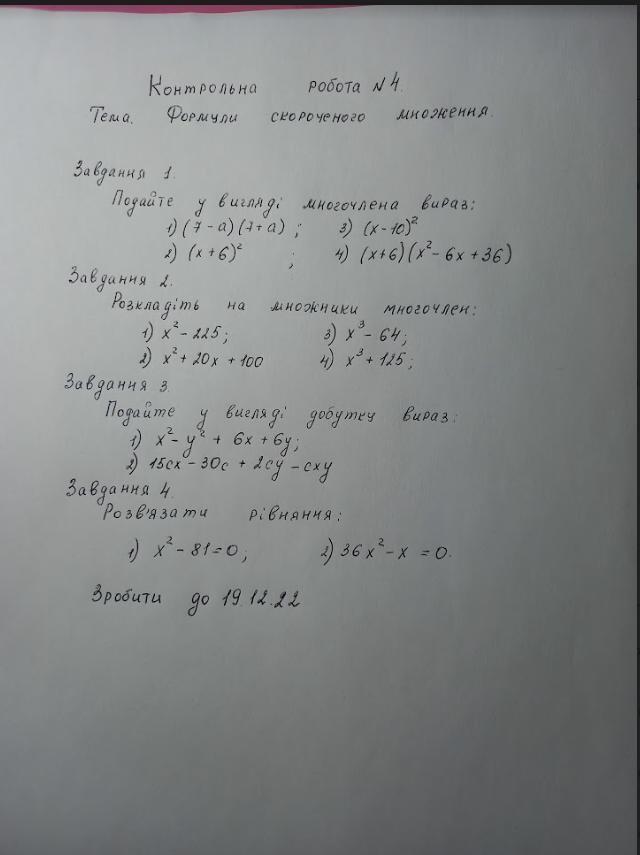 Контрольна робота №4.
Тема. Формули скороченого множення.
Завдання 1.
Подайте у вигляді многочлена вираз:
1) (7-а)(7+а); 3) (х-10)²
2) (х+6)² ; 4) (х+6)(х²-6х+36)
Завдання 2.
Розкладіть на множники многочлен:
1) х²-225; 3) х³-64;
2) х²+20х+100 4) х³+125;
Завдання 3.
Подайте у вигляді добутку вираз:
1) х²-у²+6х+6у;
2) 15сх-30с+2су-сху
Завдання 4.
Розв'язати рівняння:
1) х²-81=0; 2) 36х²-х=0.
Зробити до 19.12.22